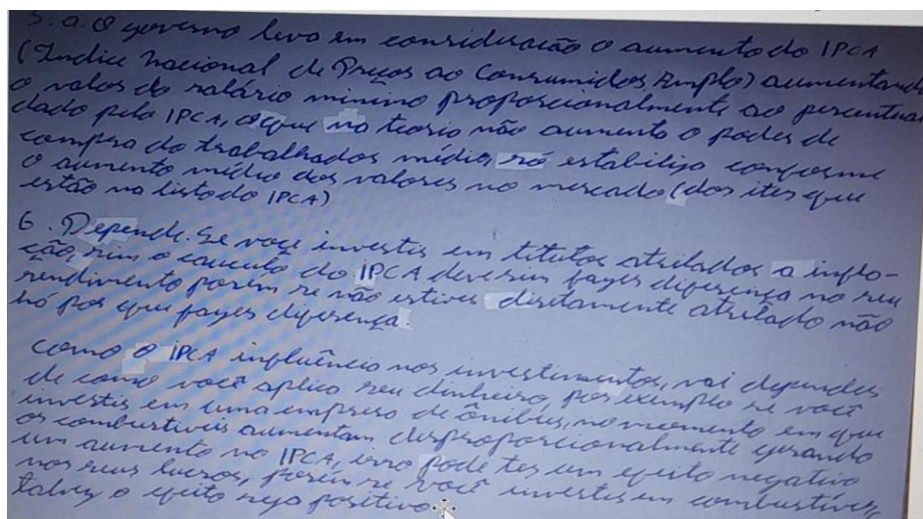 5. a. O governo leva em consideração o aumento do IPCA
(Índice Nacional de Preços ao Consumidor Amplo) aumentando
o valor do salário mínimo proporcionalmente ao percentual
dado pelo IPCA, o que na teoria não aumenta o poder de
compra do trabalhador médio, só estabiliza conforme
o aumento médio dos valores no mercado (dos ites que
estão na lista do IPCA)
6. Depende. Se você investir em títulos atrelados a infla-
ção, sim o cálculo do IPCA deve sim fazer diferença no seu
rendimento porém se não estiver diretamente atrelado não
há por que fazer diferença.
como o IPCA influência nos investimentos, vai depender
de como você aplica seu dinheiro, por exemplo se você
investir em uma empresa de ônibus, no momento em que
os combustíveis aumentam desproporcionalmente gerando
um aumento no IPCA, isso pode ter um efeito negativo
nos seus lucros, porém se você investir em combustíveis,
talvez o efeito seja positivo.